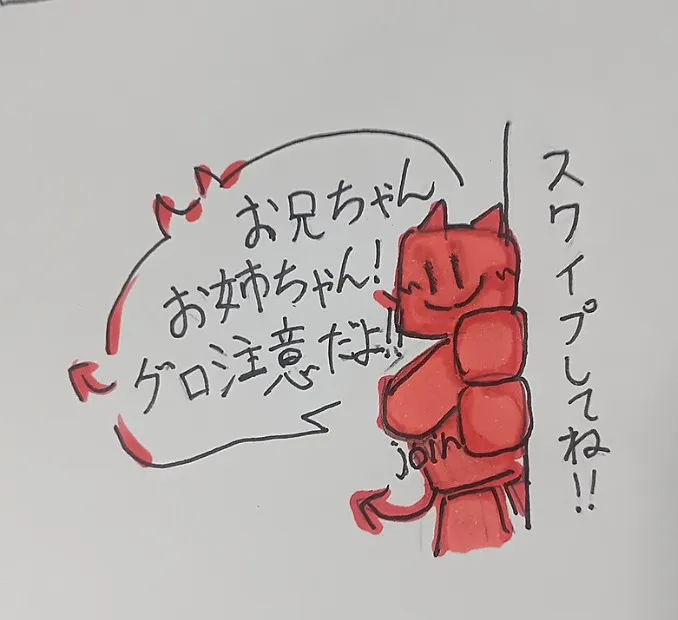 お兄ちゃん
お姉ちゃん!
グロ注意だよ!!
join
スワイプしてね!!